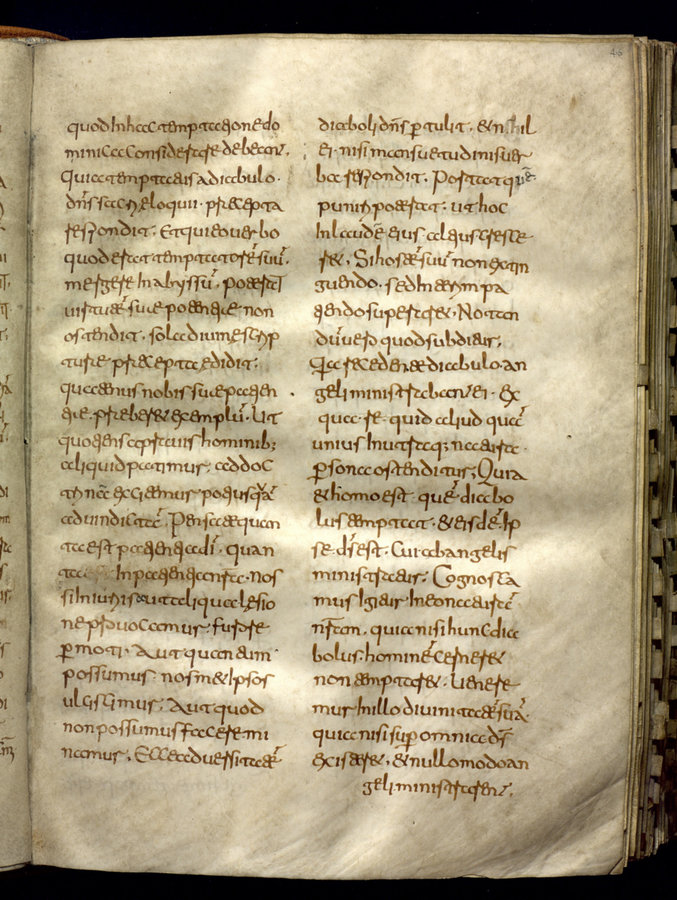 quod In hac temptatione do
mini Considerare debeam͛.
quia temptatus a diabulo.
dn̄s sacri eloquii. precepta
respondit. Et qui eo uerbo
quod erat temptatore͂ suu͂.
mergere In abyssu͂. poterat
uirtute͂ sue potentie non
ostendit. sola diuine scrip
ture precepta edidit.
quatenus nobis sue patien
tie. preberet exemplu͂. Ut
quotiens a prauis hominib;
aliquid patimur. ad doc
trina͂ excitemur potius qua͂
ad uindicta͂. Pensate quan
ta est patientia di͂. quan
ta Inpatientia nostra. Nos
si Iniuriis aut aliqua lesio
ne prouocamur. furore
p̲moti. Aut quantum
possumus. nosmet Ipsos
ulciscimur. Aut quod
non possumus facere mi
namur. Ecce aduersitate͂
diaboli dn̄s p̲tulit. & nihil
ei. nisi mansuetudinis uer
ba respondit. Portat que͂.
punire poterat. ut hoc
In laude eius. altius cresce
ret. Si hoste͂ suu͂ non extin
guendo. sed Interim pa
tiendo superaret. Notan
du͂ uero quod subditur.
Qia recedente diabulo. an
geli ministrabant ei. Ex
qua re quid aliud qua͂
unius Inutraq; natura.
p̲sone ostenditur; Quia
& homo est. que͂ diabo
lus temptat. & eisde͂ Ip
se d͂s est. Cui ab angelis
ministratur. Cognosca
mus Igitur In eo natura͂
nr͂am. quia nisi hunc dia
bolus. homine͂ cerneret
non temptaret. Uenere
mur In illo diuinitate͂ sua͂.
quia nisi sup̲ omnia d͂s
existeret. & nullo modo an
geli ministrarent.